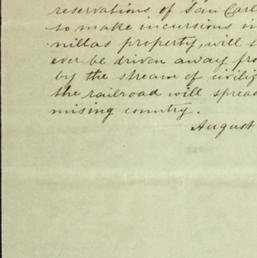 reservations of San Carl
to make incursions in
nillas property, will s
ever be driven away fro
by the stream of civiliz
the railroad will spread
mising country.
August